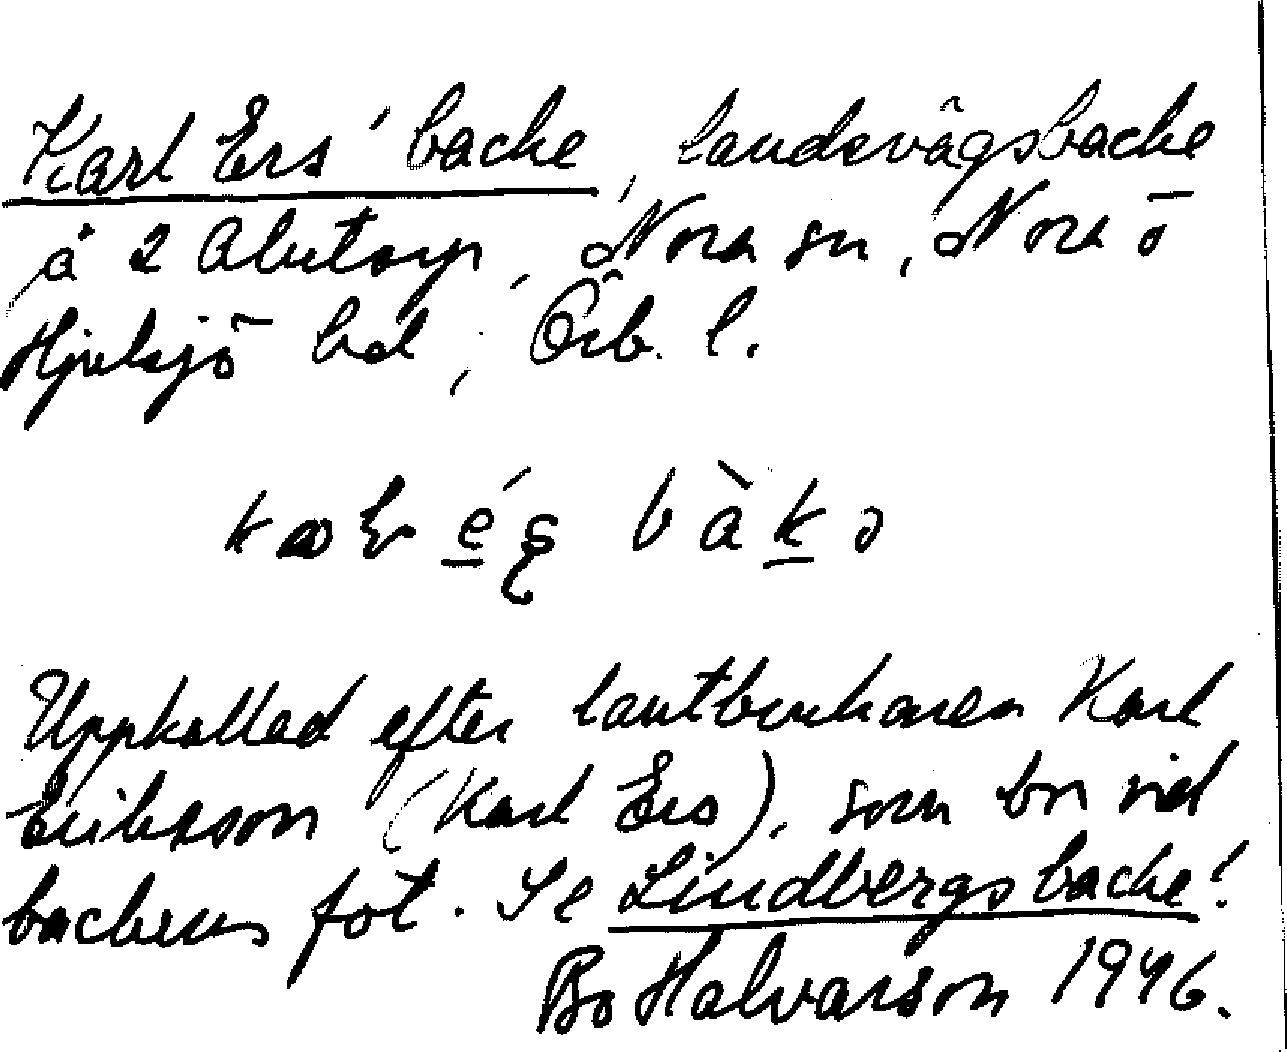 Karl Ers' backe, landsvägsbacke
å 2 Alntorp, Nora sn, Nora o
Hjulsjö bd, Örb. l.
bàkə
Uppkallad efter lantbrukaren Karl
Eriksson (Karl Ers), som bor vid
backens fot. Se Lindbergsbacke!
Bo Halvarson 1946.